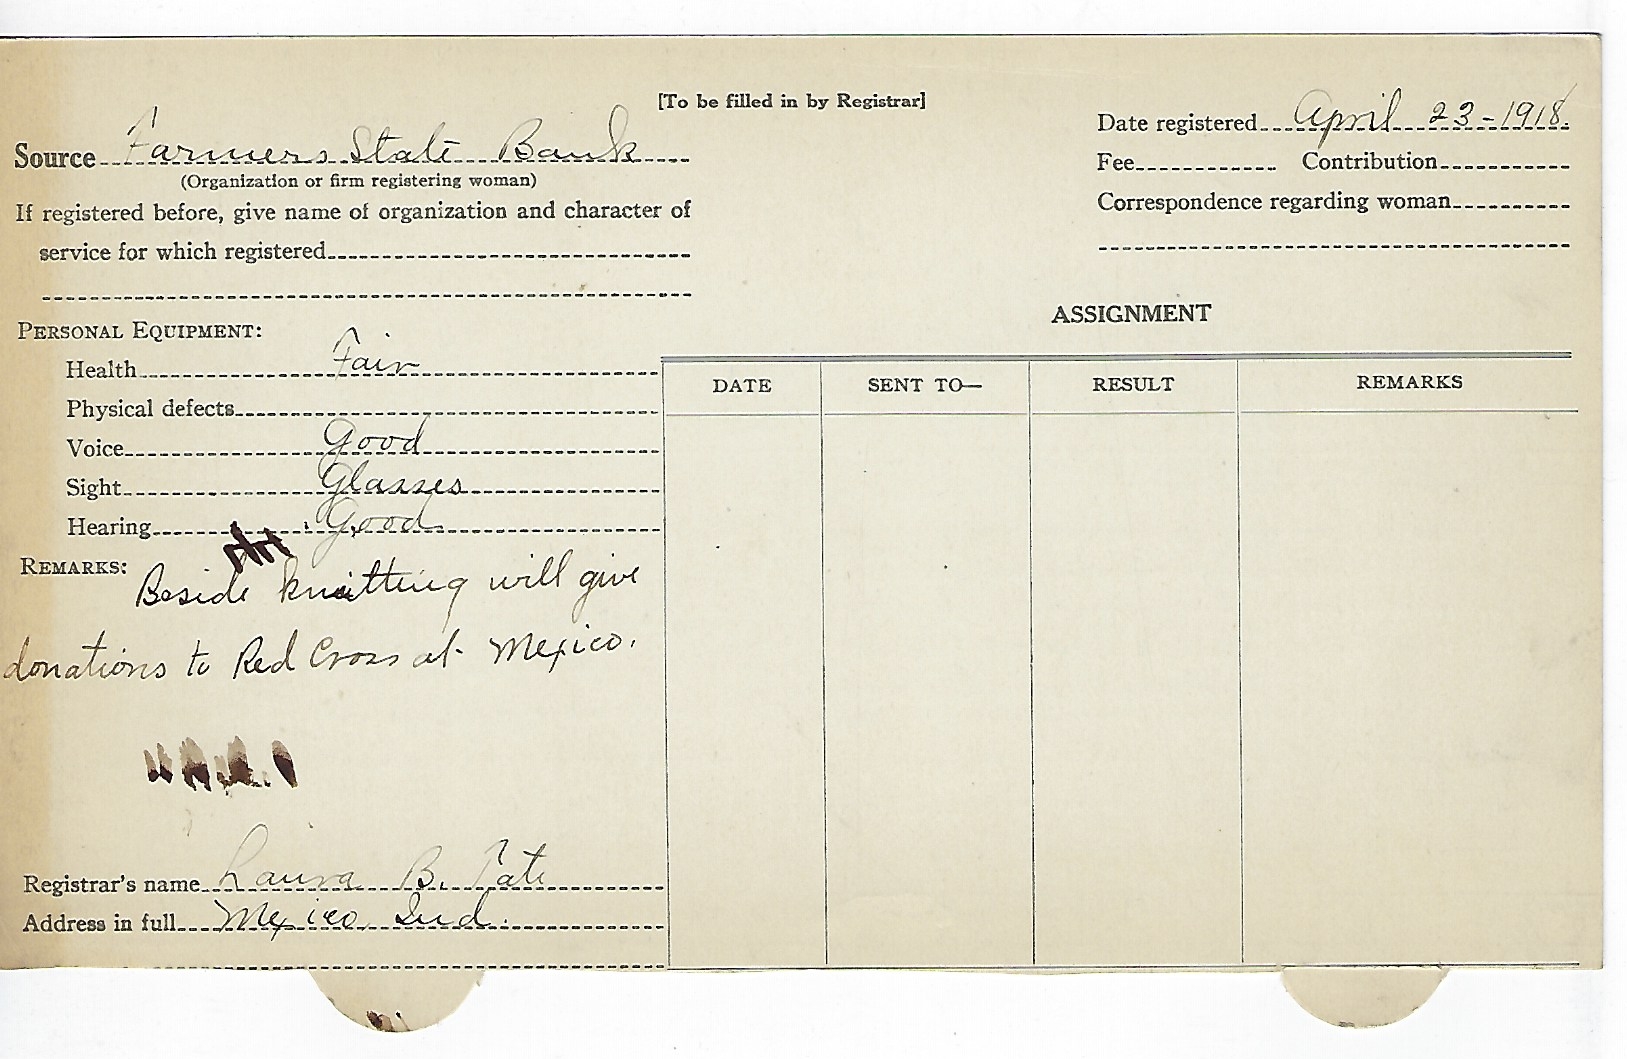 [To be filled in by Registrar]
Source Farmers State Bank
(Organization or firm registering woman)
If registered before, give name of organization and character of
service for which registered
Date registered April 23-1918.
Fee Contribution
Correspondence regarding woman
PERSONAL EQUIPMENT:
Health Fair
Physical defects
Voice Good
Sight Glasses
Hearing Good
REMARKS: Beside knitting will give
donations to Red Cross at Mexico.
Registrar's name Laura B. Tate
Address in full Mexico Ind.
ASSIGNMENT
DATE SENT TO— RESULT REMARKS